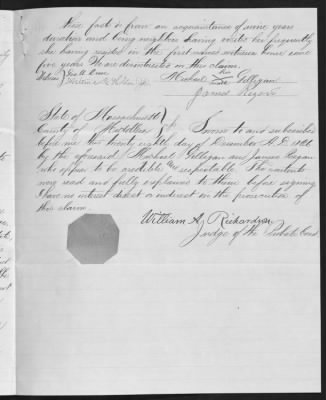 this fact is from an acquaintance of some years
duration and being neighbors having visited her frequently
she having resided in the first named witness' house some
five years. We are disinterested in this claim.
his
Michael Gillegan
mark
James Regan
State of Massachusetts
County of Middlesex Sworn to and subscribed
before me this twenty eighth day of December A.D.
by the aforesaid Michael Gillegan and James Regan
who appear to be credible & respectable. The contents
were read and fully explained to them before signing
I have no interest direct or indirect in the prosecution of
this claim.
William A. Richardson
Judge of the Probate Court